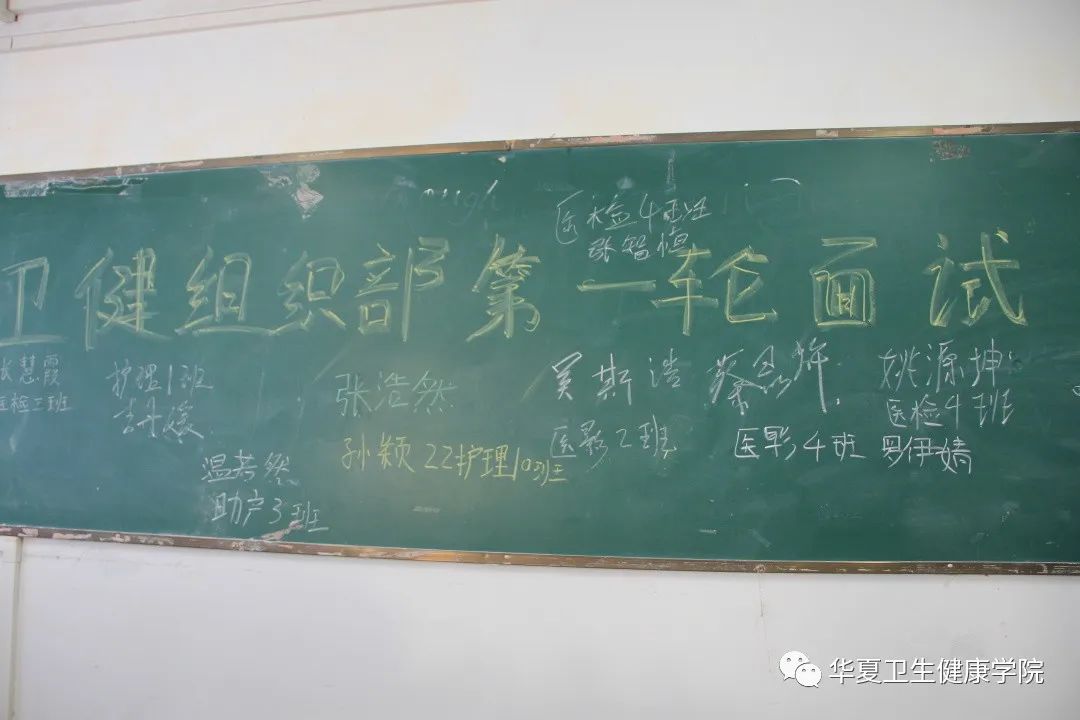 医检4班
张智慎
卫健组织部第一轮面试
慧霞
医检2班
护理1班
张浩然
吴斯浩
医影2班
蔡思炜
医影4班
姚源坤
医检4班
罗伊婧
孙颖 22护理10班
温若然
助产3班
华夏卫生健康学院